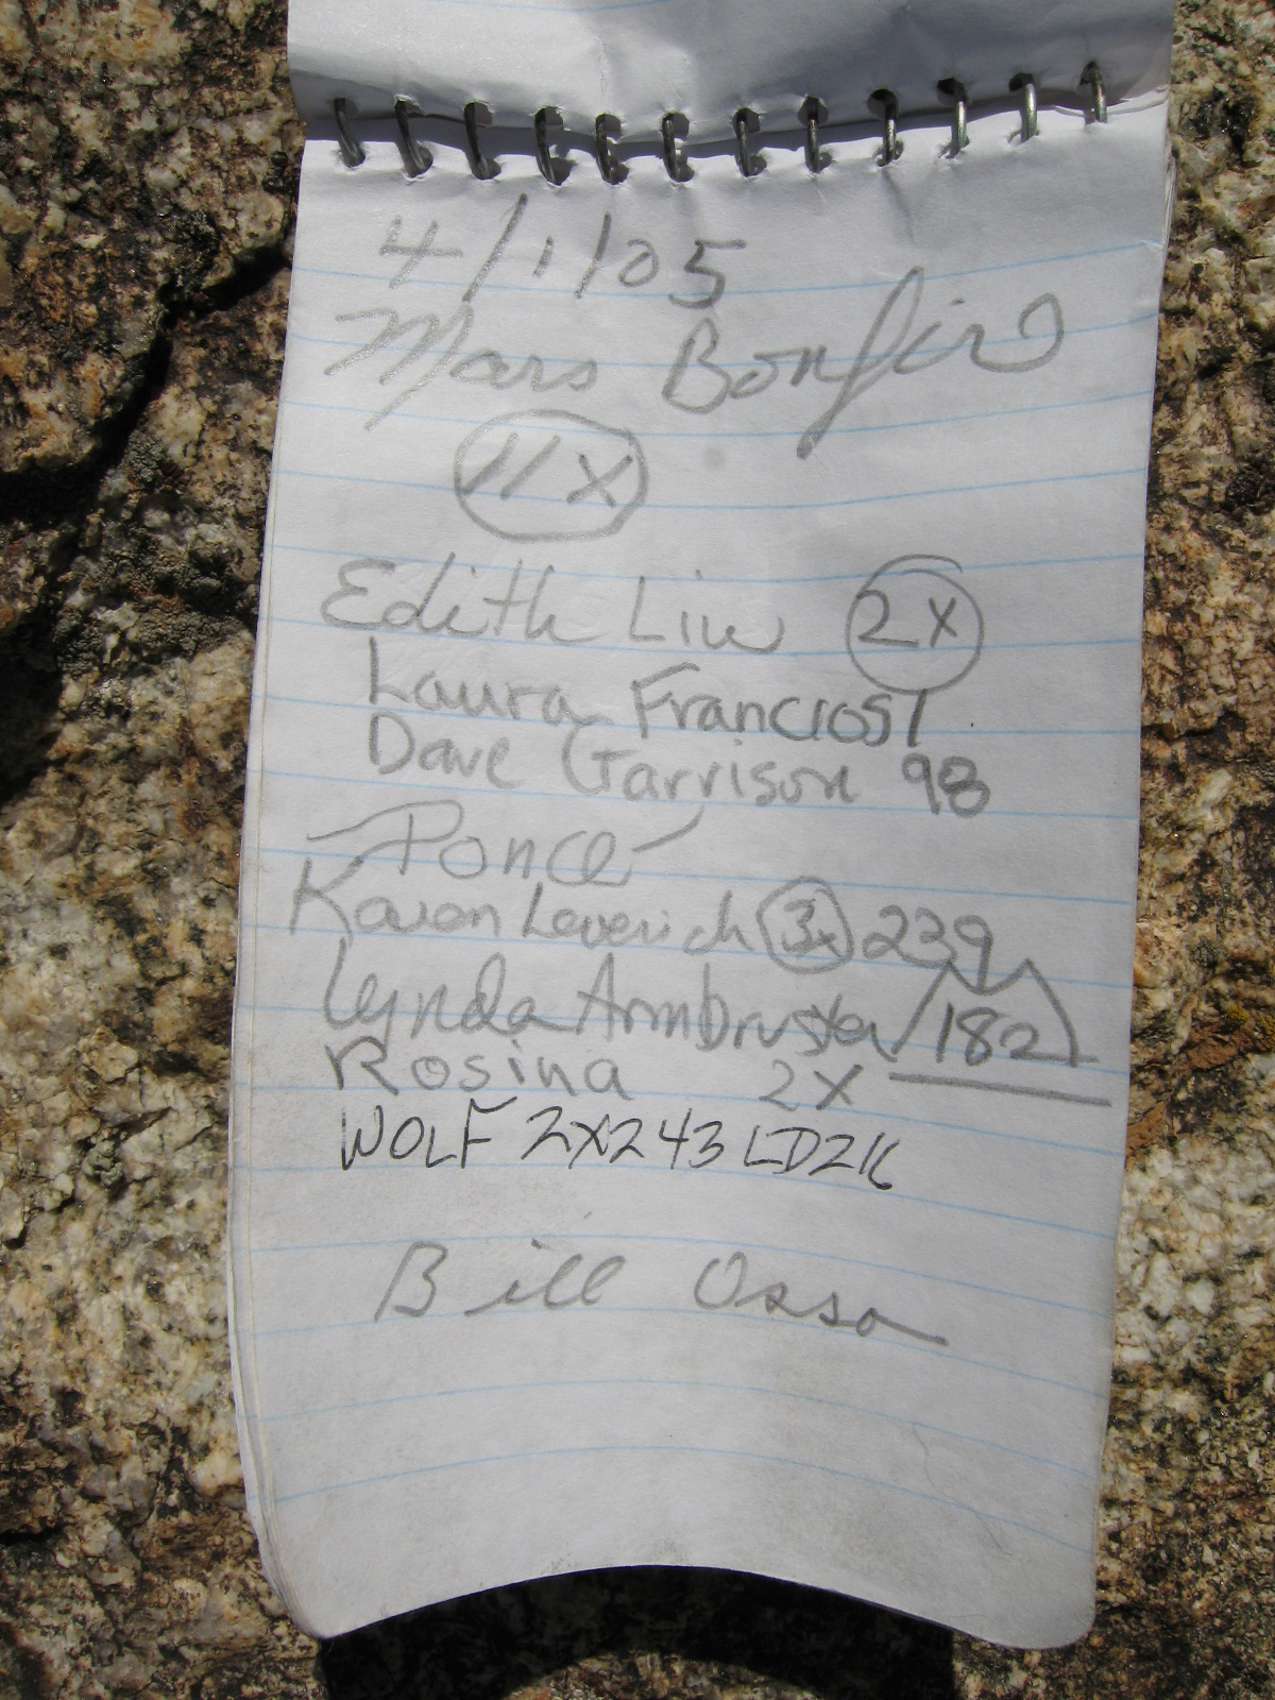 4/1/05
Mars Bonfire
11X
Edith Liu 2X
Laura Franciosi
Dave Garrison 98
Ponce
Karen Leverich 3x 239
Lynda Armbruster 182
Rosina 2X
WOLF 2X243 LD2K
Bill Osso